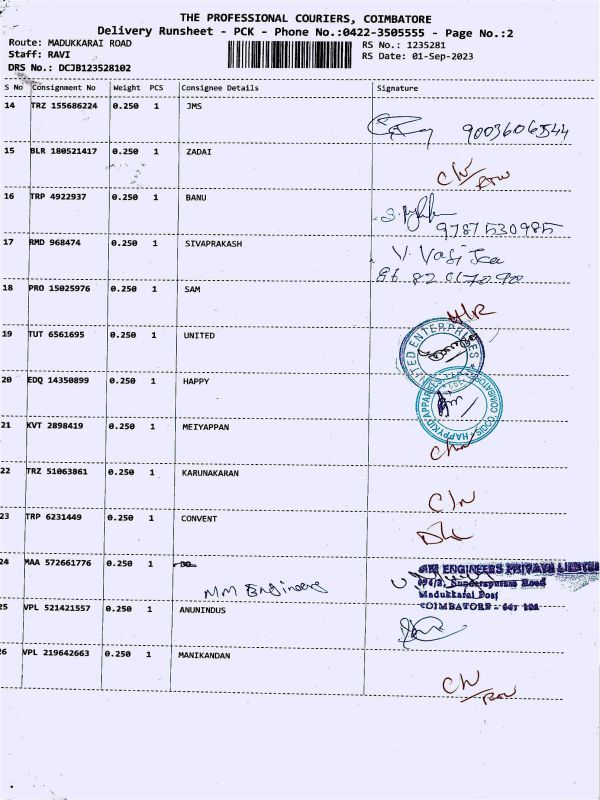 THE PROFESSIONAL COURIERS, COIMBATORE
Delivery Runsheet - PCK - Phone No.:0422-3505555 - Page No.:2
Route: MADUKKARAI ROAD RS No.: 1235281
Staff: RAVI RS Date: 01-Sep-2023
DRS No.: DCJB123528102
S No Consignment No Weight PCS Consignee Details Signature
14 TRZ 155686224 0.250 1 JMS
9003606544
15 BLR 180521417 0.250 1 ZADAI
C/N
16 TRP 4922937 0.250 1 BANU
9787530985
17 RMD 968474 0.250 1 SIVAPRAKASH
V. Vasi
18 PRO 15025976 0.250 1 SAM
19 TUT 6561695 0.250 1 UNITED
UNITED ENTERPRISES
20 EDQ 14350899 0.250 1 HAPPY
HAPPYKID APPARELS SIDCO, COIMBATORE
21 KVT 2898419 0.250 1 MEIYAPPAN
22 TRZ 51063861 0.250 1 KARUNAKARAN
C/N
23 TRP 6231449 0.250 1 CONVENT
24 MAA 572661776 0.250 1
MM Engineers
MM ENGINEERS PRIVATE LIMITED
Sundarapuram Road
Madukkarai Post
COIMBATORE - 641
25 VPL 521421557 0.250 1 ANUNINDUS
26 VPL 219642663 0.250 1 MANIKANDAN
C/N